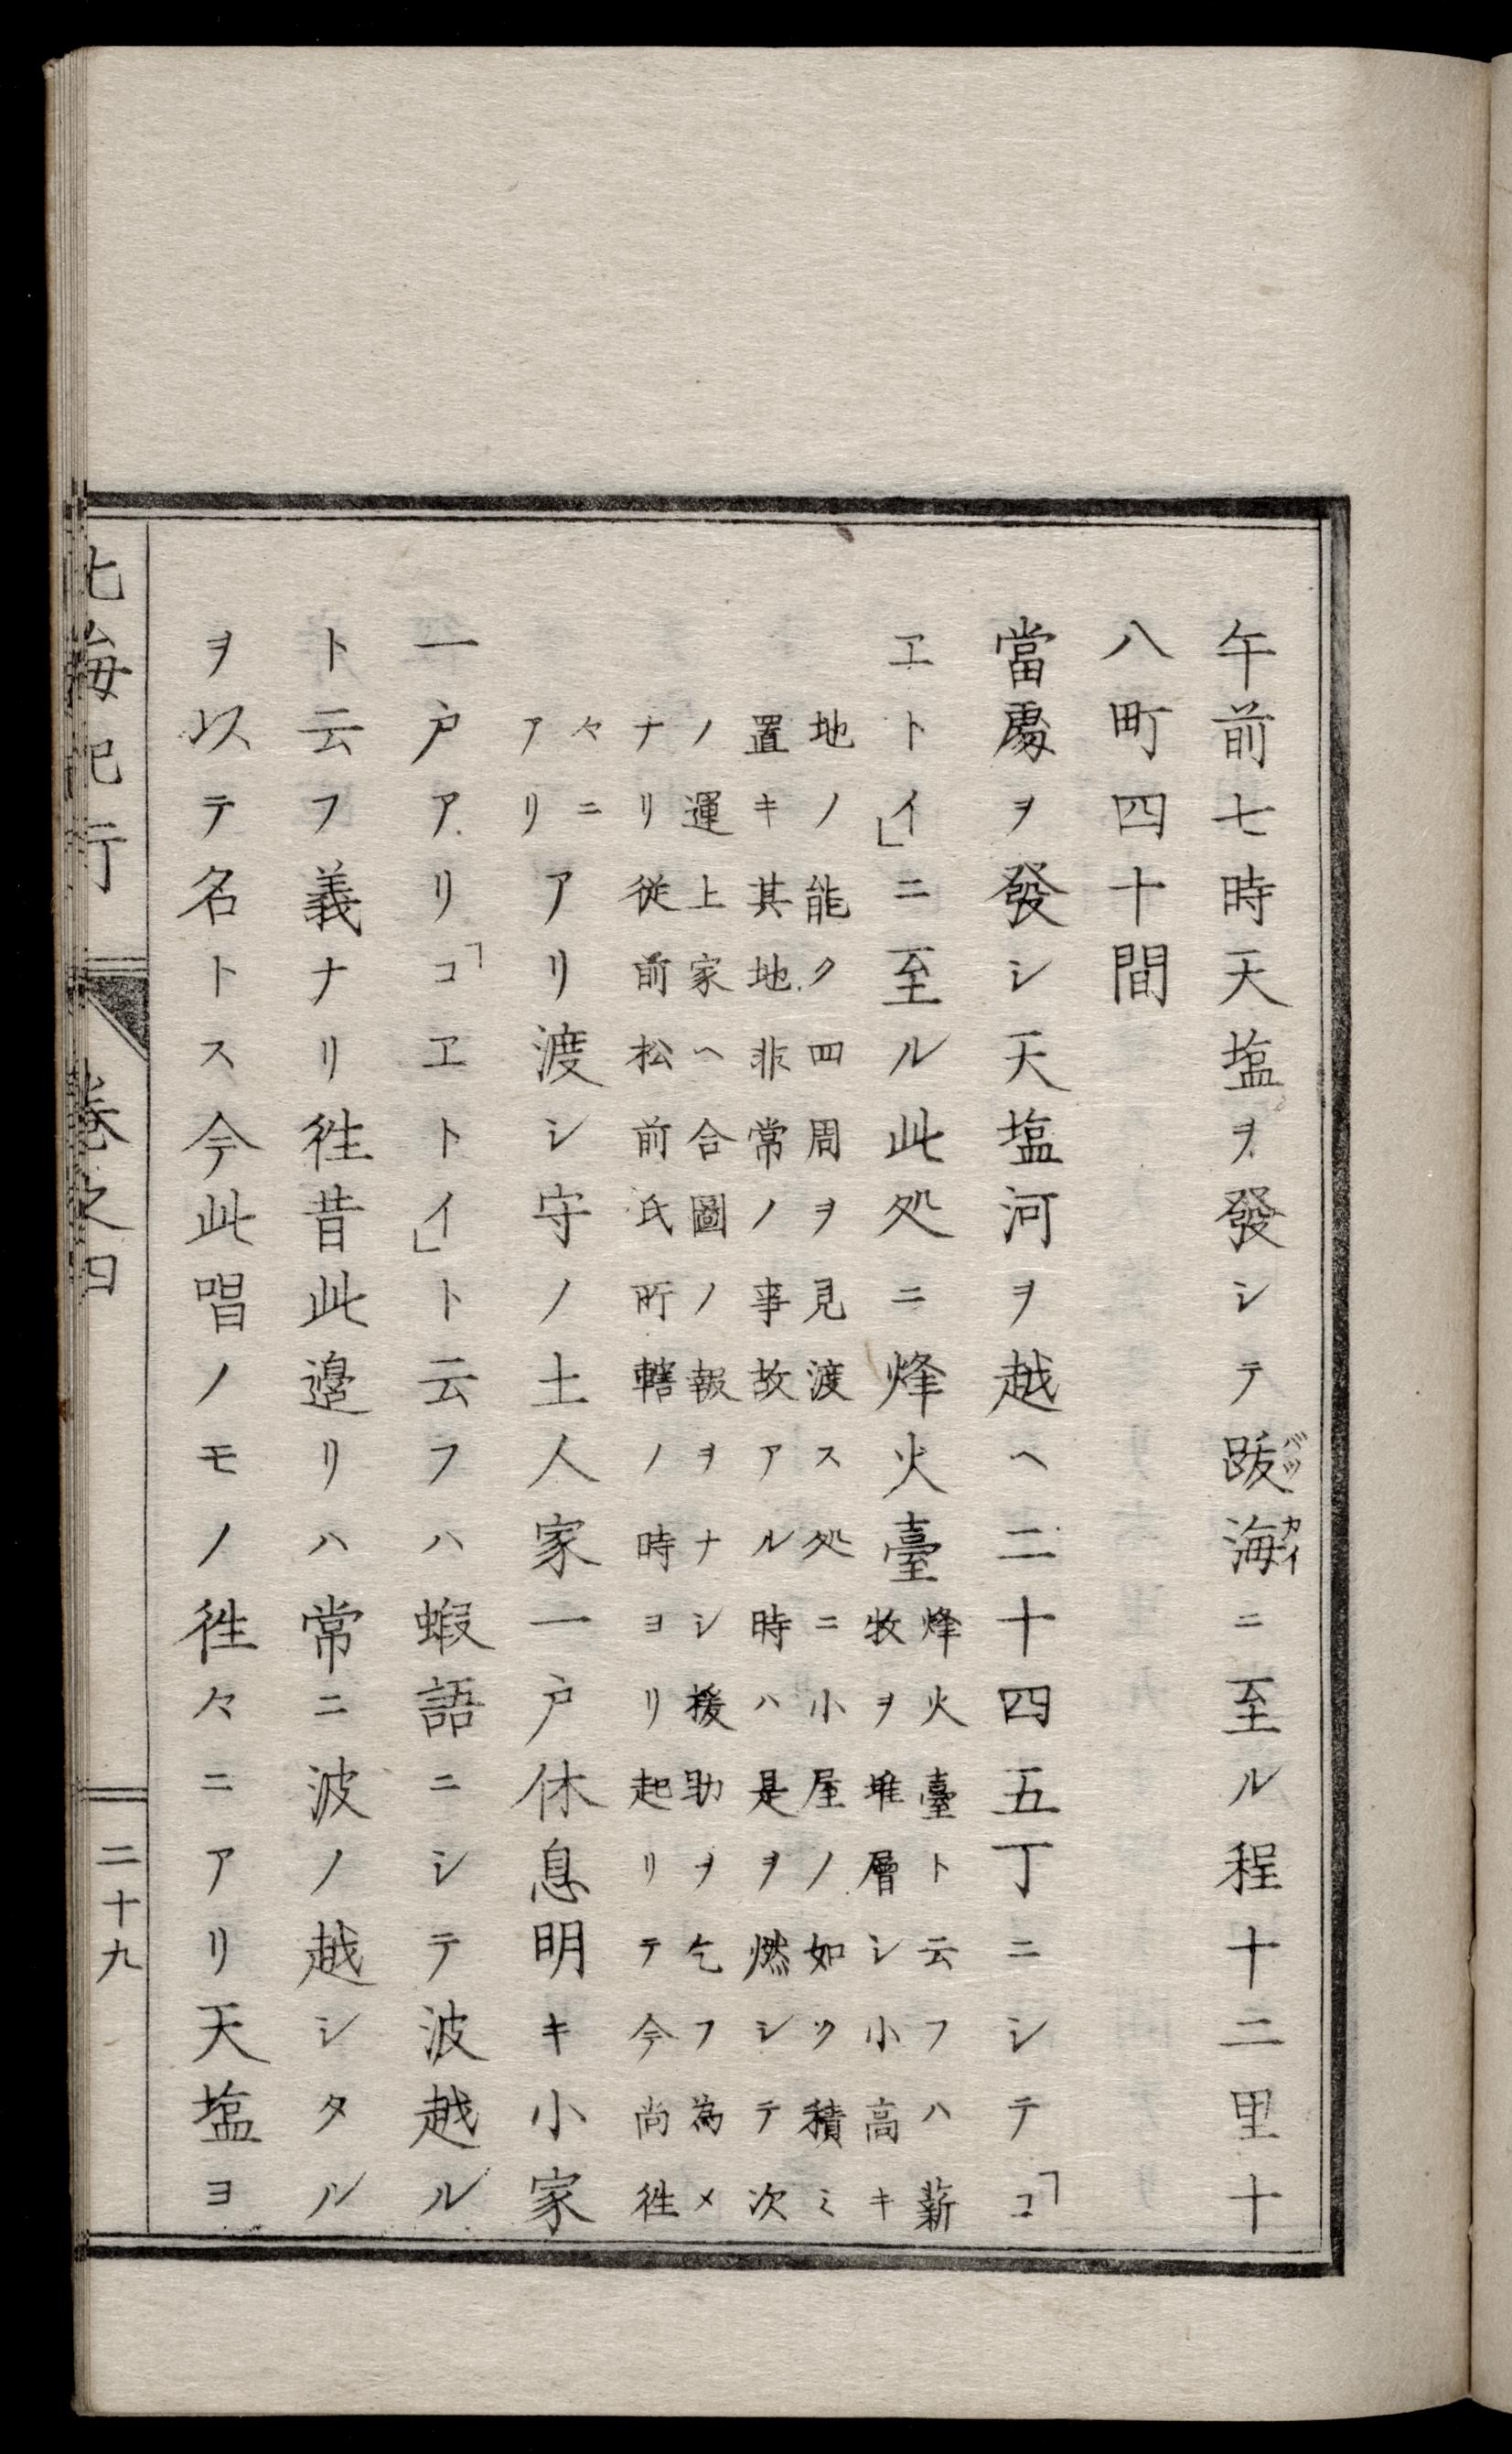 午前七時天塩ヲ發シテ䟦海ニ至ル程十二里十
バツカイ
八町四十間
當處ヲ發シ天塩河ヲ越ヘ二十四五丁ニシテ「コ
エトイ」ニ至ル此処ニ烽火臺
烽火臺ト云フハ薪
牧ヲ堆層シ小高キ
地ノ能ク四周ヲ見渡ス処ニ小屋ノ如ク積ミ
置キ其地非常ノ事故アル時ハ是ヲ燃シテ次
ノ運上家ヘ合圖ノ報ヲナシ援助ヲ乞フ為メ
ナリ從前松前氏所轄ノ時ヨリ起リテ今尚徃
々ニ
アリ
アリ渡シ守ノ土人家一戸休息明キ小家
一戸アリ「コエトイ」ト云フハ蝦語ニシテ波越ル
ト云フ義ナリ徃昔此邉リハ常ニ波ノ越シタル
ヲ以テ名トス今此唱ノモノ徃々ニアリ天塩ヨ
北海紀行 巻之四 二十九